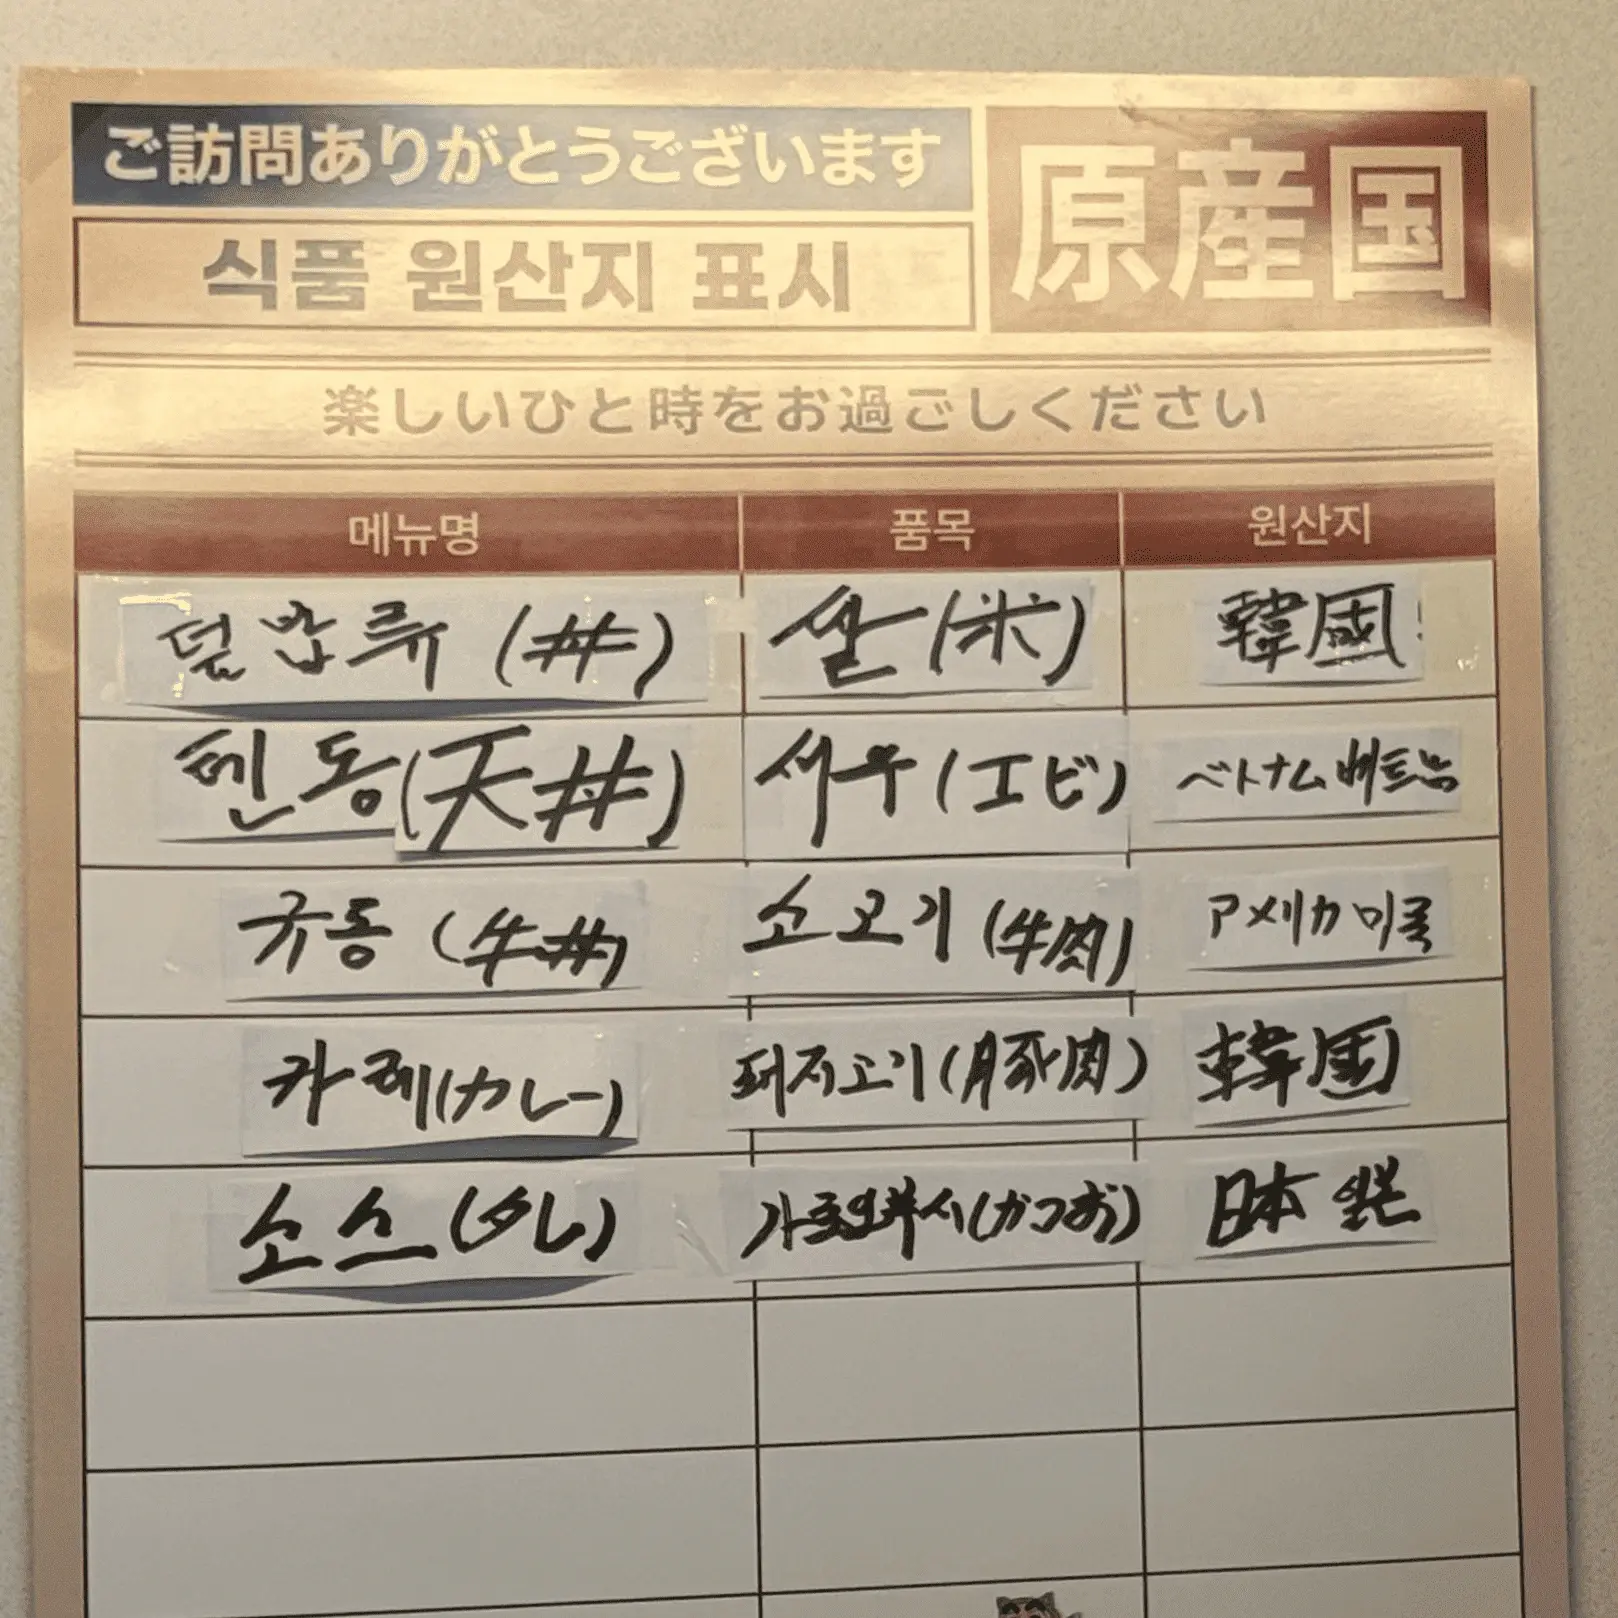 ご訪問ありがとうございます
原産国
식품 원산지 표시
楽しいひと時をお過ごしください
메뉴명 품목 원산지
덮밥류 (丼) 쌀 (米) 韓國
텐동 (天丼) 새우 (エビ) ベトナム 베트남
규동 (牛丼) 소고기 (牛肉) アメリカ 미국
카레 (カレー) 돼지고기 (豚肉) 韓国
소스 (タレ) 가쓰오부시 (かつお) 日本 일본